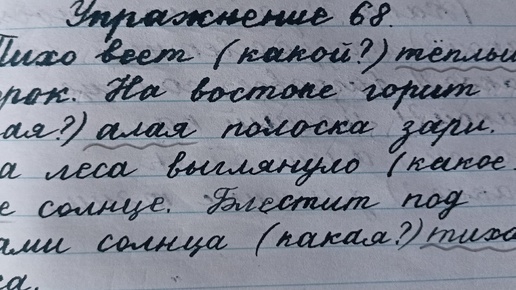 Упражнение 68.
Тихо веет (какой?) тёплы
рок. На востоке горит
ая?) алая полоска зари.
а леса выглянуло (какое
е солнце. Блестит под
ами солнца (какая?) тиха
са.